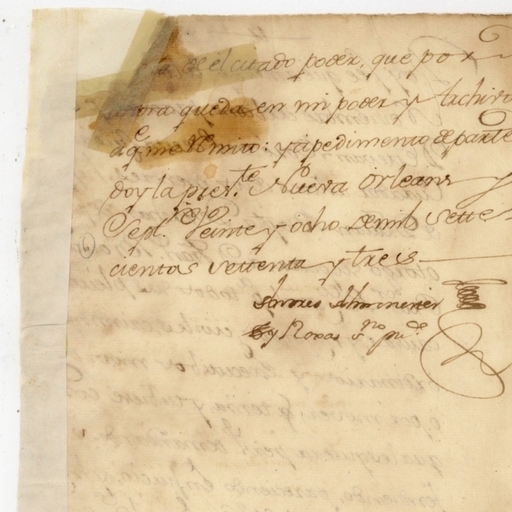 de el citado poder, que por
aora queda en mi poder y Archivo
a q.e me Remito: y a pedimento de parte
doy la pres.te Nueva Orleans y
Sept.re Veinte y ocho de mil sette
cientos settenta y tres
Andres Almonester
y Roxas s.no pu.co